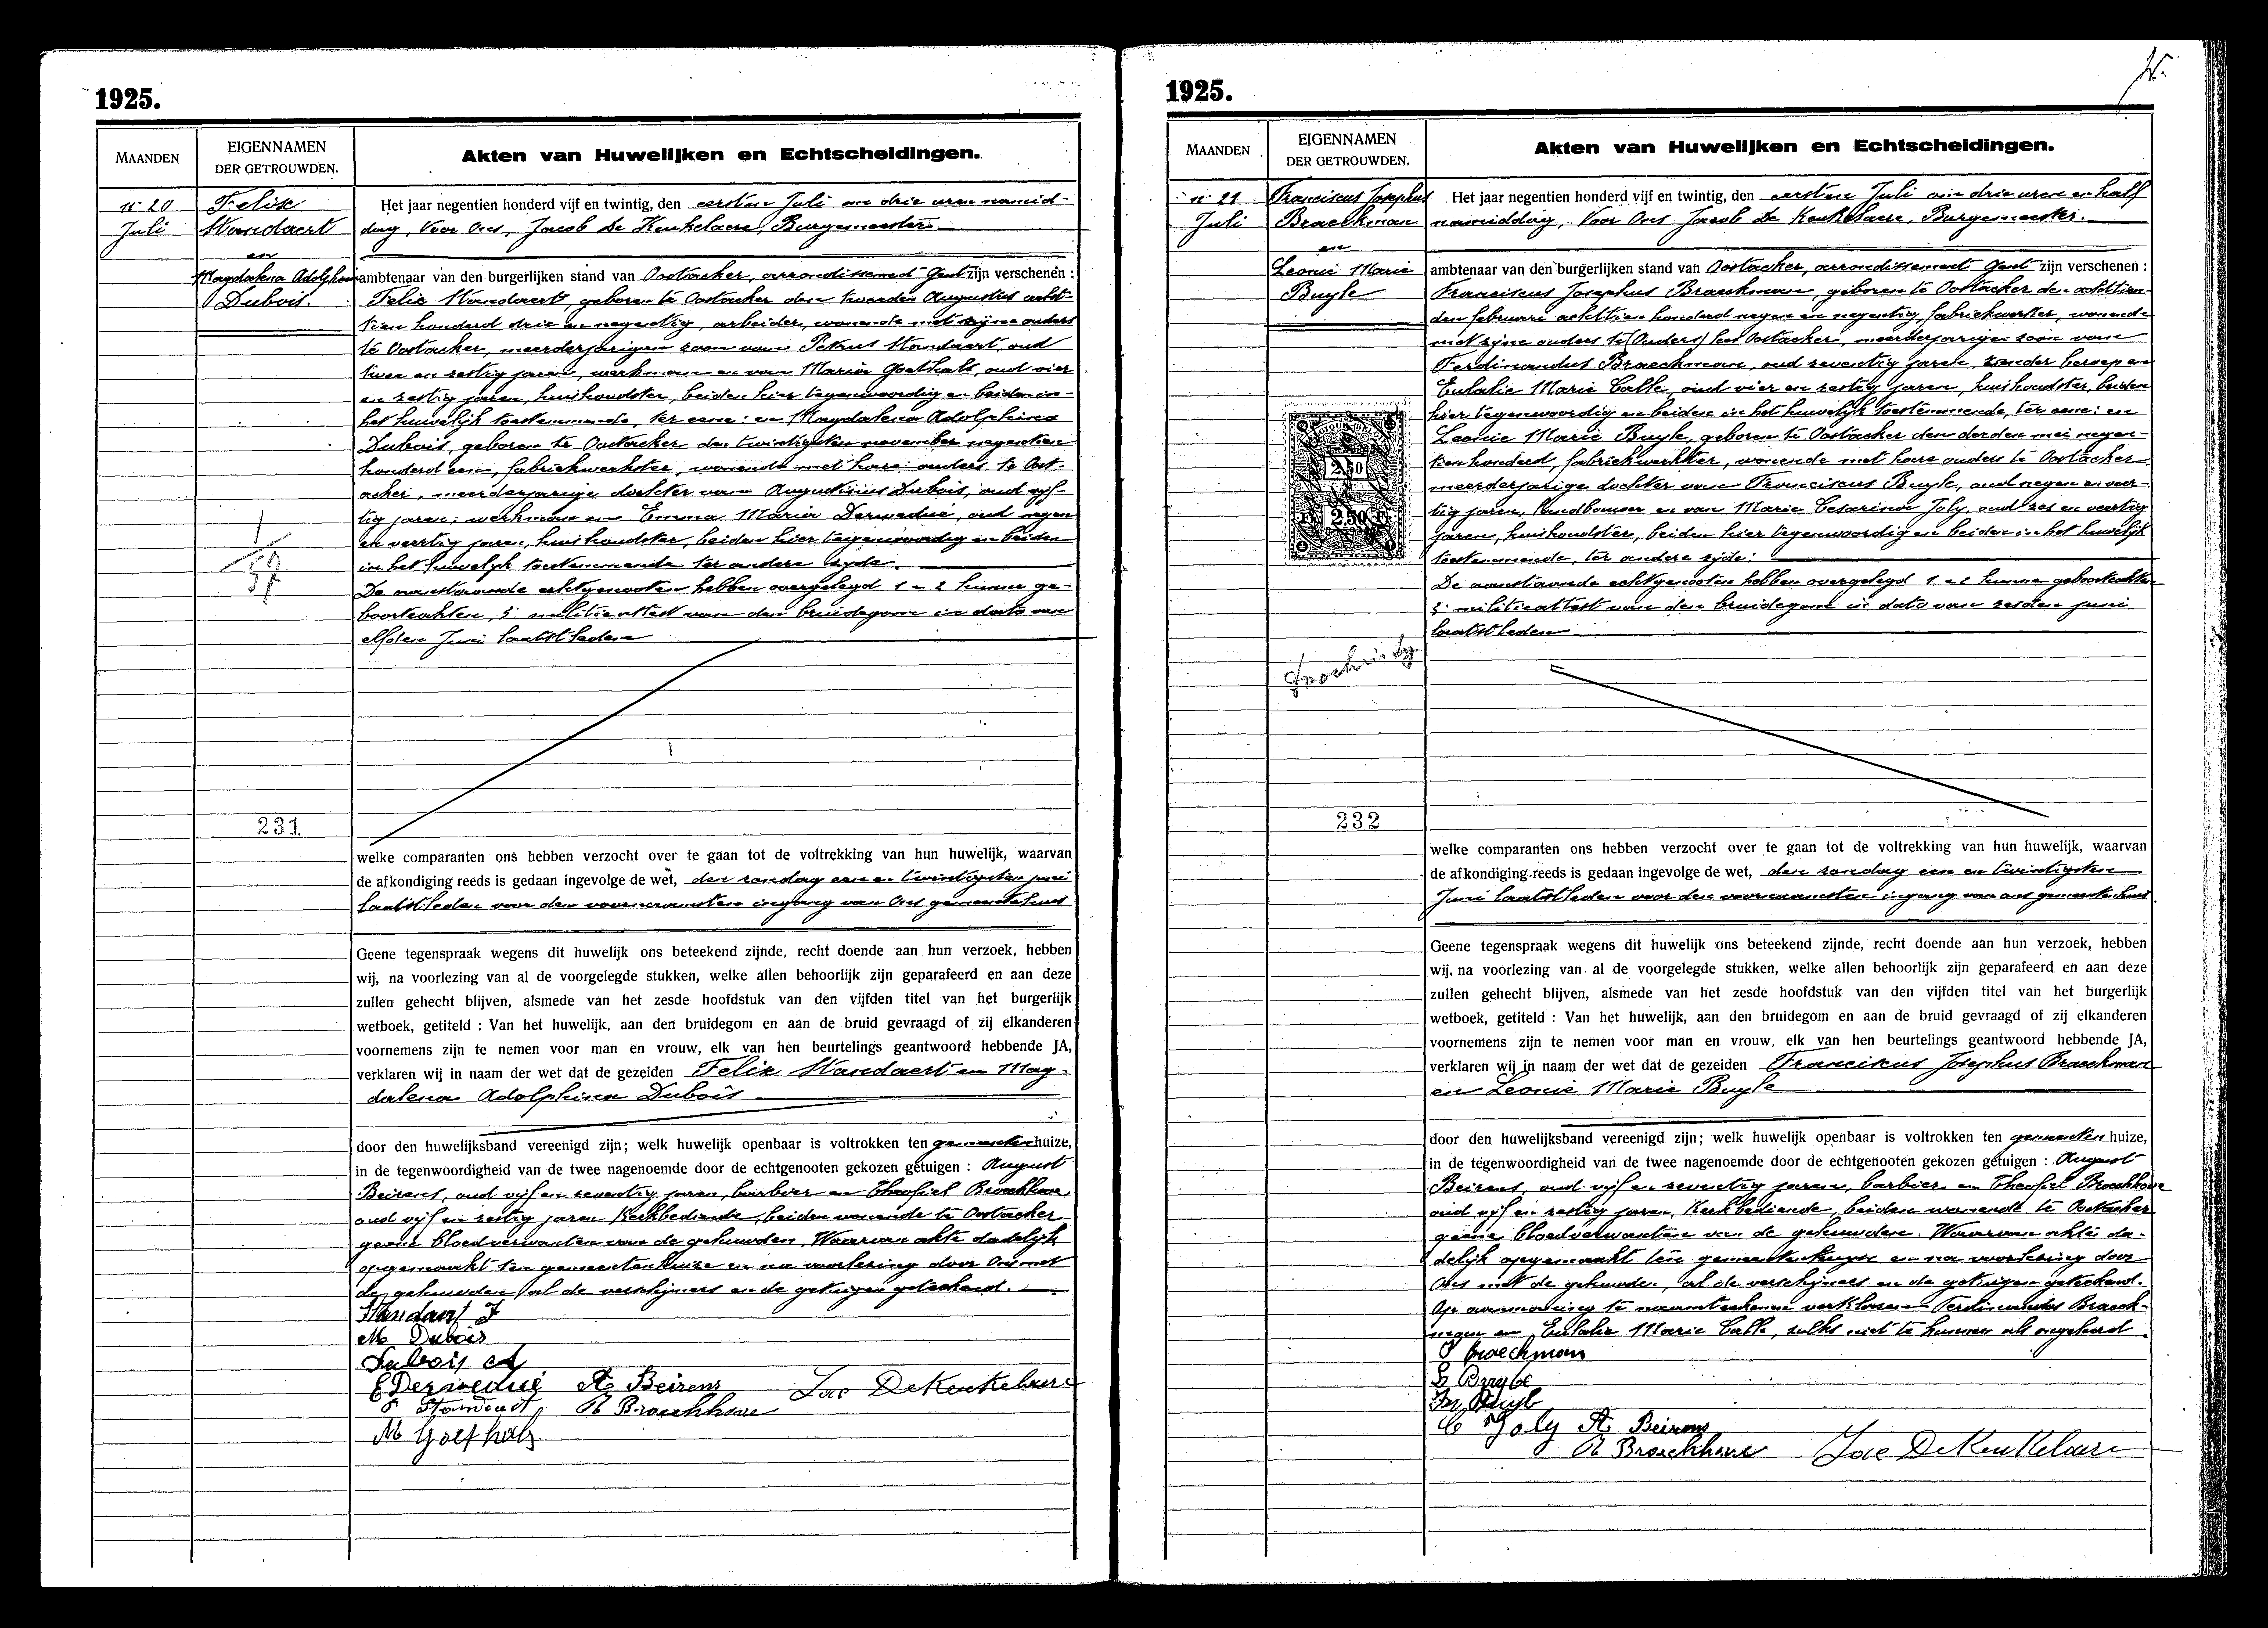 1925.
MAANDEN
EIGENNAMEN
DER GETROUWDEN.
Akten van Huwelijken en Echtscheidingen.
n° 20
Juli
Felix
Standaert
en
Magdalena Adolphina
Dubois.
Het jaar negentien honderd vijf en twintig, den eersten Juli om drie uren namid-
dag, Voor Ons, Jacob De Keukelaere, Burgemeester
ambtenaar van den burgerlijken stand van Oostacker, arrondissement Gent zijn verschenen :
Felix Standaert, geboren te Oostacker den tweeden Augustus acht-
tien honderd drie en negentig, arbeider, wonende met zijne ouders
te Oostacker, meerderjarigen zoon van Petrus Standaert, oud
twee en zestig jaren, werkman en van Maria Goethals, oud vier
en zestig jaren, huishoudster, beiden hier tegenwoordig en beiden in
het huwelijk toestemmende, ter eene: en Magdalena Adolphina
Dubois, geboren te Oostacker den twintigsten november negentien
honderd een, fabriekwerkster, wonende met hare ouders te Oost-
acker, meerderjarige dochter van Augustinus Dubois, oud vijf-
tig jaren, werkman en Emma Maria Derwedué, oud negen
en veertig jaren, huishoudster, beiden hier tegenwoordig en beiden
in het huwelijk toestemmende ter andere zijde.
De aanstaande echtgenooten hebben overgelegd 1 - 2 hunne ge-
boorteakten, 3° militieattest van den bruidegom in dato van
elfden Juni laatstleden
1
57
231
welke comparanten ons hebben verzocht over te gaan tot de voltrekking van hun huwelijk, waarvan
de afkondiging reeds is gedaan ingevolge de wet, den zondag een en twintigsten juni
laatstleden voor den voornaamsten ingang van Ons gemeentehuis
Geene tegenspraak wegens dit huwelijk ons beteekend zijnde, recht doende aan hun verzoek, hebben
wij, na voorlezing van al de voorgelegde stukken, welke allen behoorlijk zijn geparafeerd en aan deze
zullen gehecht blijven, alsmede van het zesde hoofdstuk van den vijfden titel van het burgerlijk
wetboek, getiteld : Van het huwelijk, aan den bruidegom en aan de bruid gevraagd of zij elkanderen
voornemens zijn te nemen voor man en vrouw, elk van hen beurtelings geantwoord hebbende JA,
verklaren wij in naam der wet dat de gezeiden Felix Standaert en Mag-
dalena Adolphina Dubois
door den huwelijksband vereenigd zijn; welk huwelijk openbaar is voltrokken ten gemeentenhuize,
in de tegenwoordigheid van de twee nagenoemde door de echtgenooten gekozen getuigen : August
Beirens, oud vijf en zeventig jaren, barbier en Theofiel Broeckhove
oud vijf en zestig jaren Kerkbediende, beiden wonende te Oostacker
geene bloedverwanten van de gehuwden. Waarvan akte dadelijk
opgemaakt ten gemeentenhuize en na voorlezing door Ons met
de gehuwden, al de verschijners en de getuigen geteekend.
Standaert F
M Dubois
Dubois A
E Derwedué A. Beirens Jac DeKeukelaere
P Standaert T. Broeckhove
M Goethals
1925.
MAANDEN
EIGENNAMEN
DER GETROUWDEN.
Akten van Huwelijken en Echtscheidingen.
n° 21
Juli
Franciscus Josephus
Braeckman
en
Leonie Marie
Buyle
Het jaar negentien honderd vijf en twintig, den eersten Juli om drie uren en half
namiddag, Voor Ons Jacob De Keukelaere, Burgemeester.
ambtenaar van den burgerlijken stand van Oostacker, arrondissement Gent zijn verschenen :
Franciscus Josephus Braeckman, geboren te Oostacker den achttien-
den februari achttien honderd negen en negentig, fabriekwerker, wonende
met zijne ouders te (Ouders) te Oostacker, meerderjarigen zoon van
Ferdinandus Braeckman, oud zeventig jaren, zonder beroep en
Eulalie Marie Calle, oud vier en zestig jaren, huishoudster, beiden
hier tegenwoordig en beiden in het huwelijk toestemmende, ter eene: en
Leonie Marie Buyle, geboren te Oostacker den derden mei negen-
tien honderd, fabriekwerkster, wonende met hare ouders te Oostacker
meerderjarige dochter van Franciscus Buyle, oud negen en veer-
tig jaren, landbouwer en van Marie Cesarina Joly, oud zes en veertig
jaren, huishoudster, beiden hier tegenwoordig en beiden in het huwelijk
toestemmende, ter andere zijde.
De aanstaande echtgenooten hebben overgelegd 1 - 2 hunne geboorteakten
3° militieattest van den bruidegom in dato van zesden juni
laatstleden
2.50
2.50
232
welke comparanten ons hebben verzocht over te gaan tot de voltrekking van hun huwelijk, waarvan
de afkondiging reeds is gedaan ingevolge de wet, den zondag een en twintigsten
Juni laatstleden voor den voornaamsten ingang van ons gemeentenhuis
Geene tegenspraak wegens dit huwelijk ons beteekend zijnde, recht doende aan hun verzoek, hebben
wij, na voorlezing van al de voorgelegde stukken, welke allen behoorlijk zijn geparafeerd en aan deze
zullen gehecht blijven, alsmede van het zesde hoofdstuk van den vijfden titel van het burgerlijk
wetboek, getiteld : Van het huwelijk, aan den bruidegom en aan de bruid gevraagd of zij elkanderen
voornemens zijn te nemen voor man en vrouw, elk van hen beurtelings geantwoord hebbende JA,
verklaren wij in naam der wet dat de gezeiden Franciscus Josephus Braeckman
en Leonie Marie Buyle
door den huwelijksband vereenigd zijn; welk huwelijk openbaar is voltrokken ten gemeentenhuize,
in de tegenwoordigheid van de twee nagenoemde door de echtgenooten gekozen getuigen : August
Beirens, oud vijf en zeventig jaren, barbier en Theofiel Broeckhove
oud vijf en zestig jaren, Kerkbediende, beiden wonende te Oostacker
geene bloedverwanten van de gehuwden. Waarvan akte da-
delijk opgemaakt ten gemeentenhuyze en na voorlezing door
Ons met de gehuwden, al de verschijners en de getuigen geteekend.
Op aanmaning te naamteekenen verklaren Ferdinandus Braeck-
man en Eulalie Marie Calle, zulks niet te kunnen als ongeleerd.
F Braeckman
L Buyle
Fr Buyle
C Joly A. Beirens
T. Broeckhove Jac DeKeukelaere